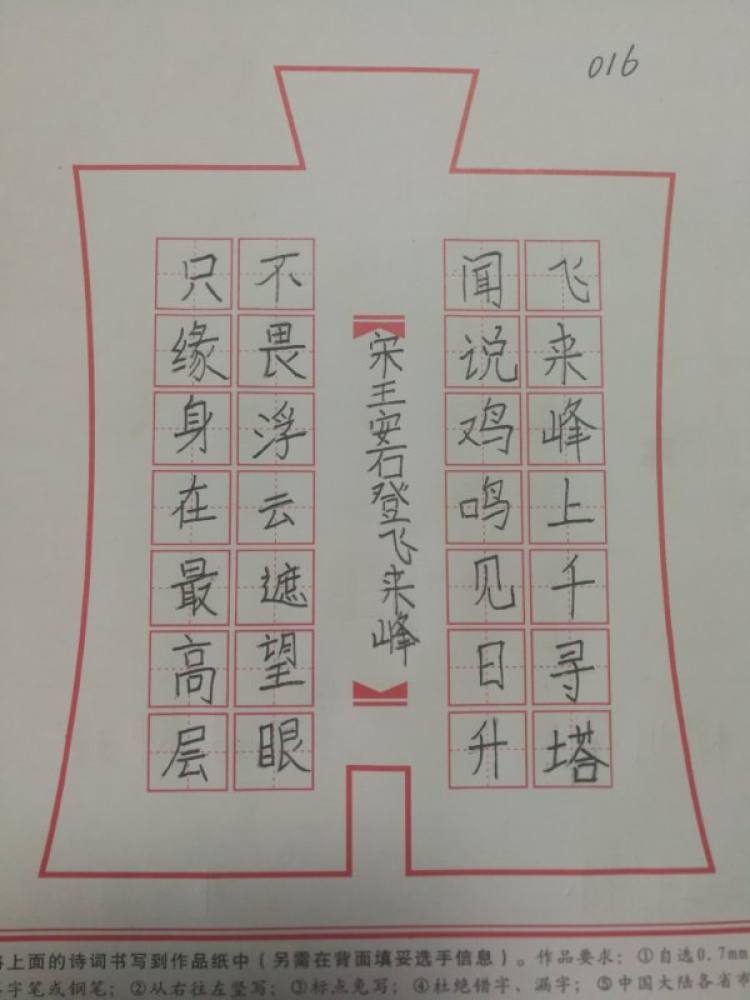 016
飞来峰上千寻塔
闻说鸡鸣见日升
宋王安石登飞来峰
不畏浮云遮望眼
只缘身在最高层
将上面的诗词书写到作品纸中(另需在背面填妥选手信息)。作品要求:①自选0.7mm
字笔或钢笔;②从右往左竖写;③标点免写;④杜绝错字、漏字;⑤中国大陆各省市